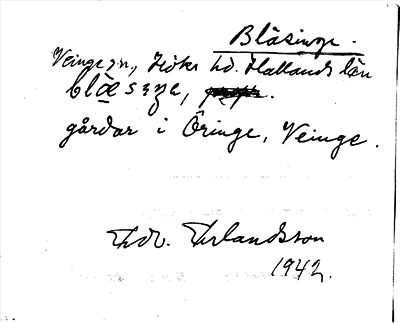 Bläsinge.
Veinge sn., Höks hd. Hallands län
blæ̀sɩŋe,
gårdar i Öringe, Veinge.
Edv. Erlandsson
1942.